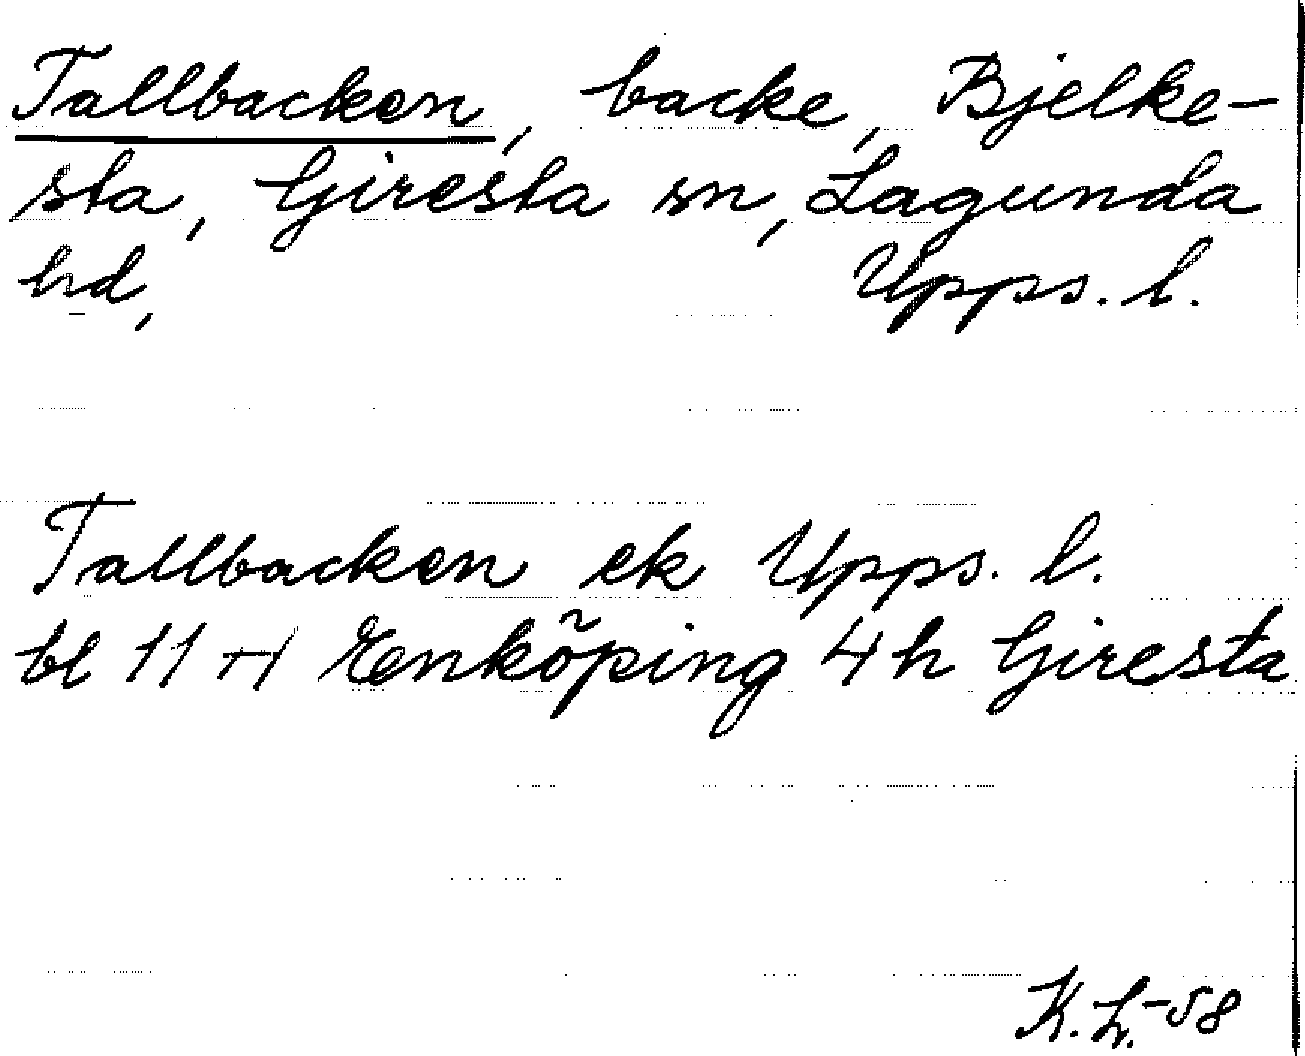 Tallbacken, backe, Bjelke-
sta, Giresta sn, Lagunda
hd, Upps. l.
Tallbacken ek Upps. l.
bl 11 Enköping 4h Giresta
K. L. -58